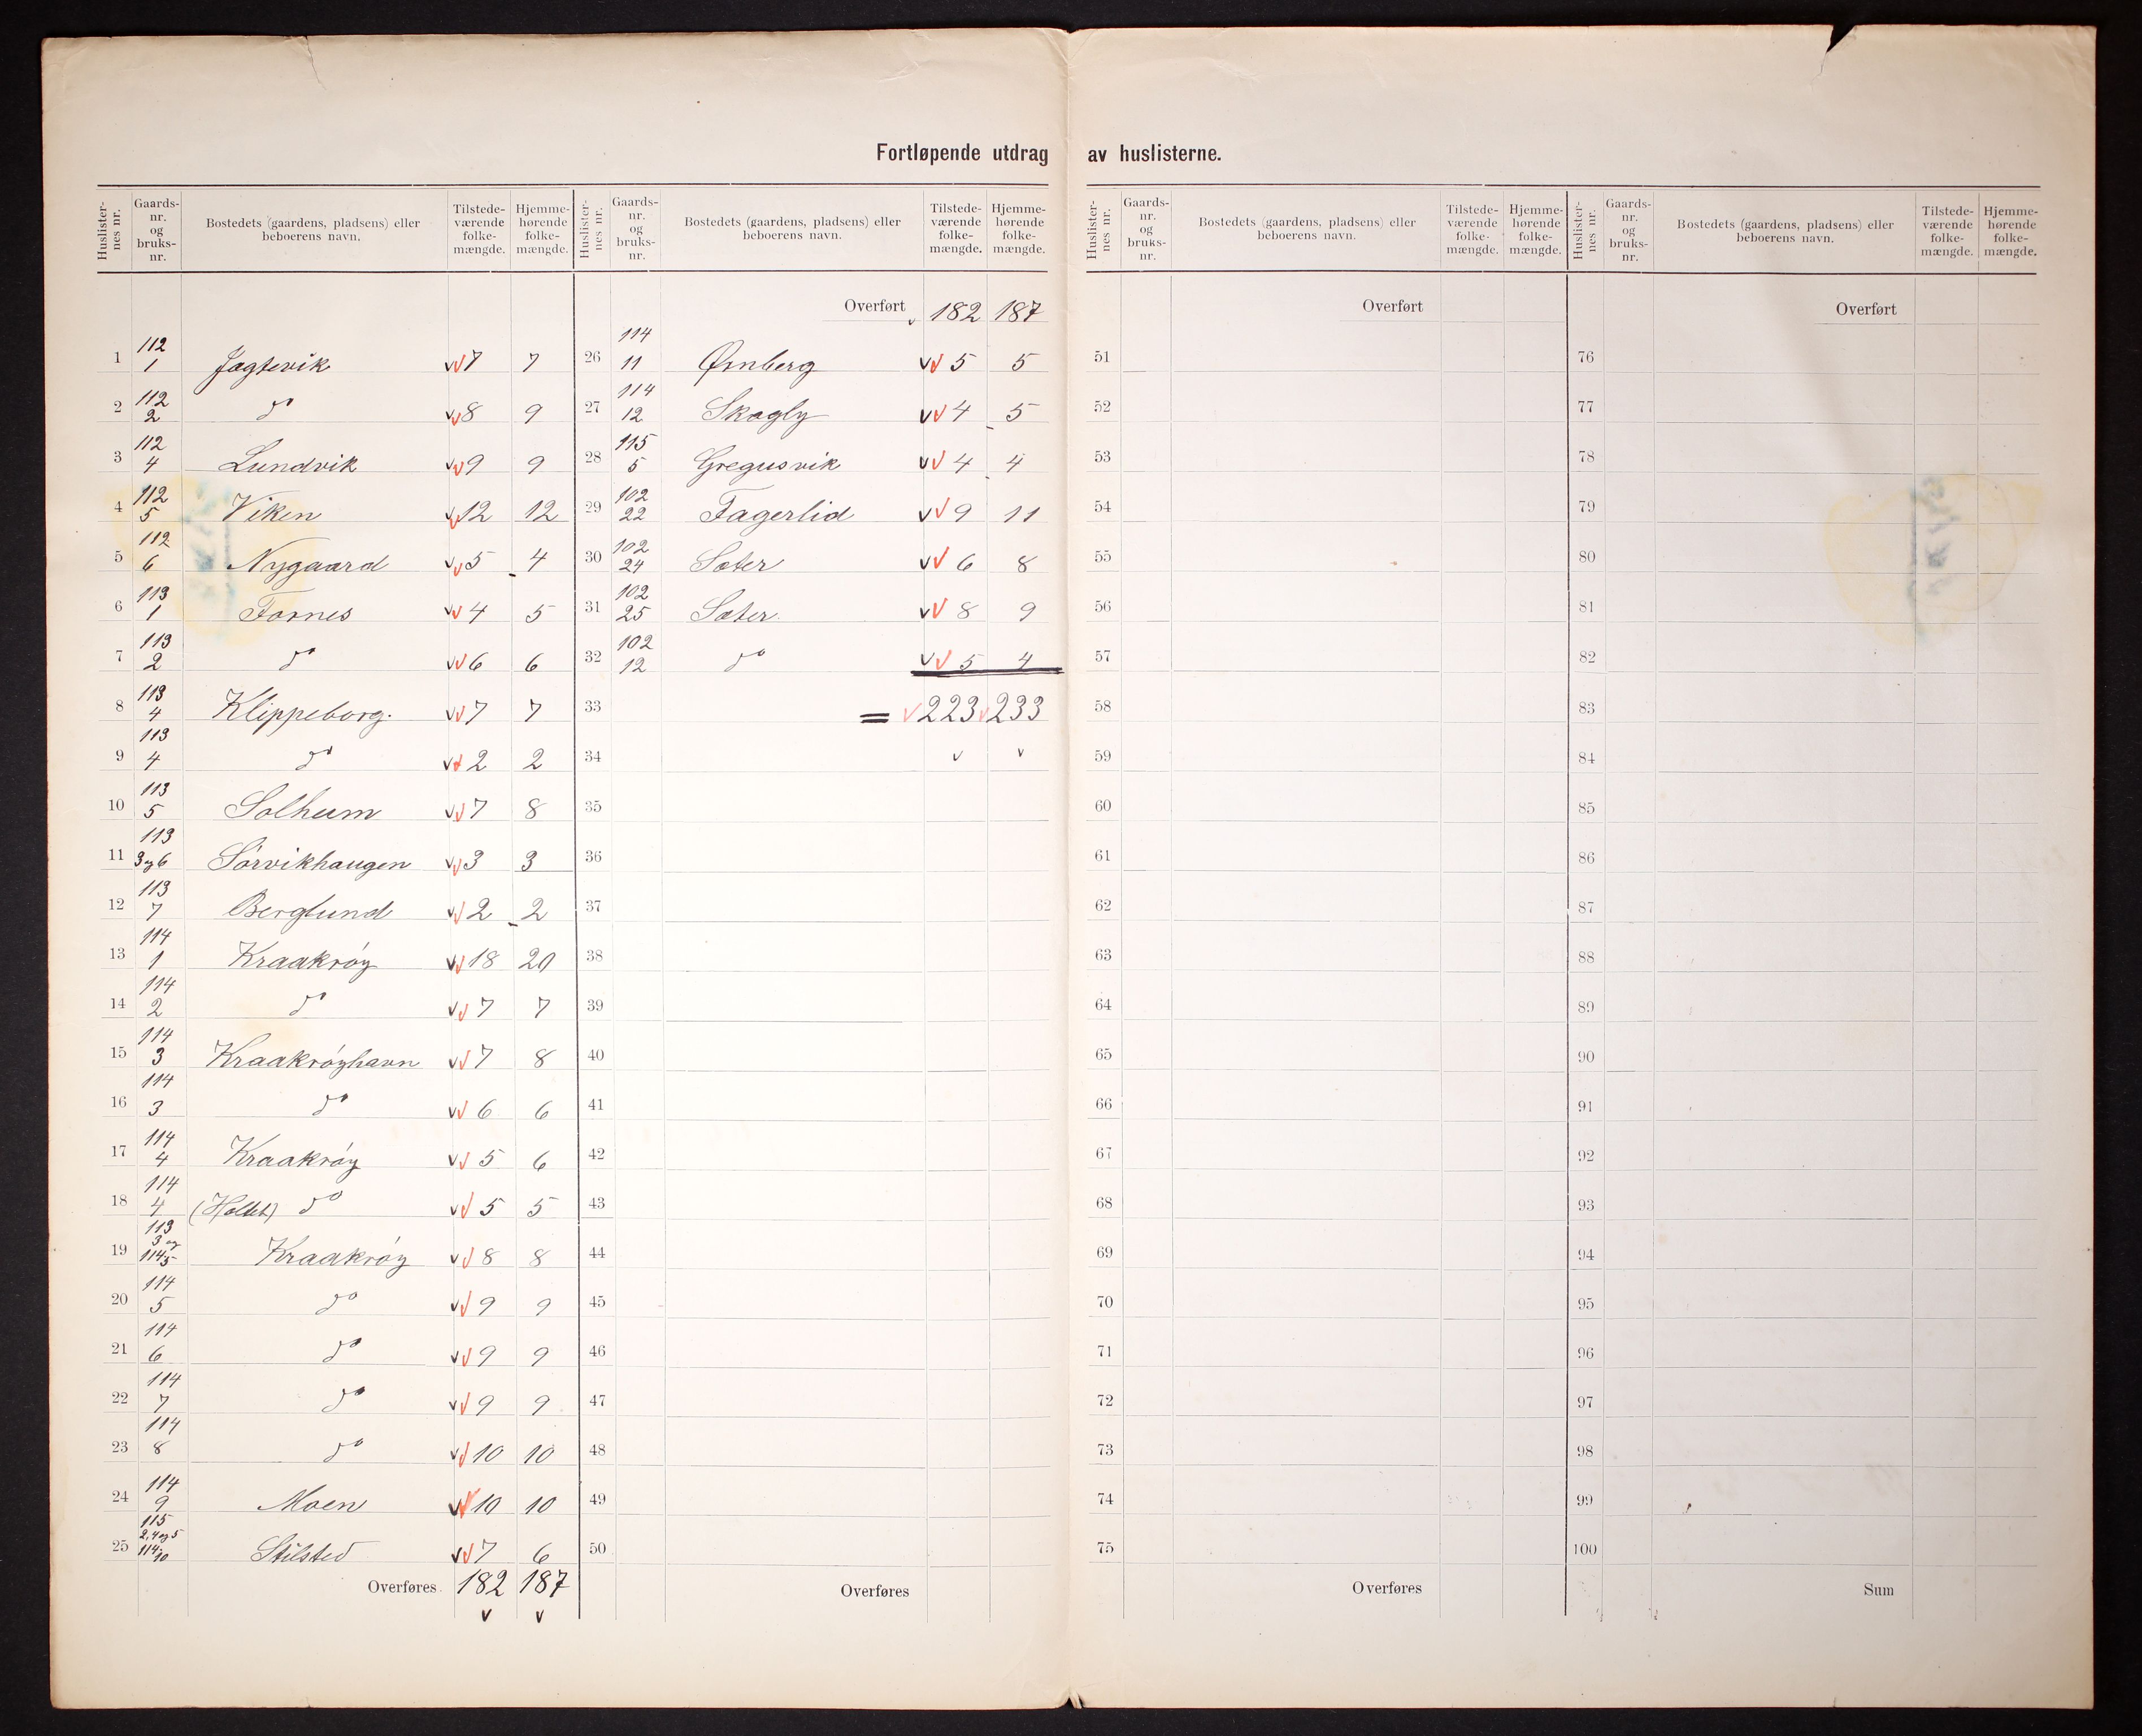 Fortløpende utdrag av huslisterne.
Huslister-nes nr. Gaards-nr. og bruks-nr. Bostedets (gaardens, pladsens) eller beboerens navn. Tilstede-værende folke-mængde. Hjemme-hørende folke-mængde.
1 112 1 Jagtevik 7 7
2 112 2 do 8 9
3 112 4 Lundvik 9 9
4 112 5 Viken 12 12
5 112 6 Nygaard 5 4
6 113 1 Fornes 4 5
7 113 2 do 6 6
8 113 4 Klippeborg. 7 7
9 113 4 do 2 2
10 113 5 Solheim 7 8
11 113 3og6 Sørvikhaugen 3 3
12 113 7 Berglund 2 2
13 114 1 Kraakrøy 18 20
14 114 2 do 7 7
15 114 3 Kraakrøyhavn 7 8
16 114 3 do 6 6
17 114 4 Kraakrøy 5 6
18 114 4 (Holtet) do 5 5
19 113 3 og 114 5 Kraakrøy 8 8
20 114 5 do 9 9
21 114 6 do 9 9
22 114 7 do 9 9
23 114 8 do 10 10
24 114 9 Moen 10 10
25 115 2,4og5 114 10 Stilsted 7 6
Overføres 182 187
Huslister-nes nr. Gaards-nr. og bruks-nr. Bostedets (gaardens, pladsens) eller beboerens navn. Tilstede-værende folke-mængde. Hjemme-hørende folke-mængde.
Overført 182 187
26 114 11 Ørnberg 5 5
27 114 12 Skogly 4 5
28 115 5 Gregusvik 4 4
29 102 22 Fagerlid 9 11
30 102 24 Sæter 6 8
31 102 25 Sæter 8 9
32 102 12 do 5 4
33 = 223 233
34
35
36
37
38
39
40
41
42
43
44
45
46
47
48
49
50
Overføres
Huslister-nes nr. Gaards-nr. og bruks-nr. Bostedets (gaardens, pladsens) eller beboerens navn. Tilstede-værende folke-mængde. Hjemme-hørende folke-mængde.
Overført
51
52
53
54
55
56
57
58
59
60
61
62
63
64
65
66
67
68
69
70
71
72
73
74
75
Overføres
Huslister-nes nr. Gaards-nr. og bruks-nr. Bostedets (gaardens, pladsens) eller beboerens navn. Tilstede-værende folke-mængde. Hjemme-hørende folke-mængde.
Overført
76
77
78
79
80
81
82
83
84
85
86
87
88
89
90
91
92
93
94
95
96
97
98
99
100
Sum